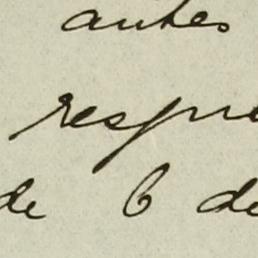 antes
respu
de 6 de